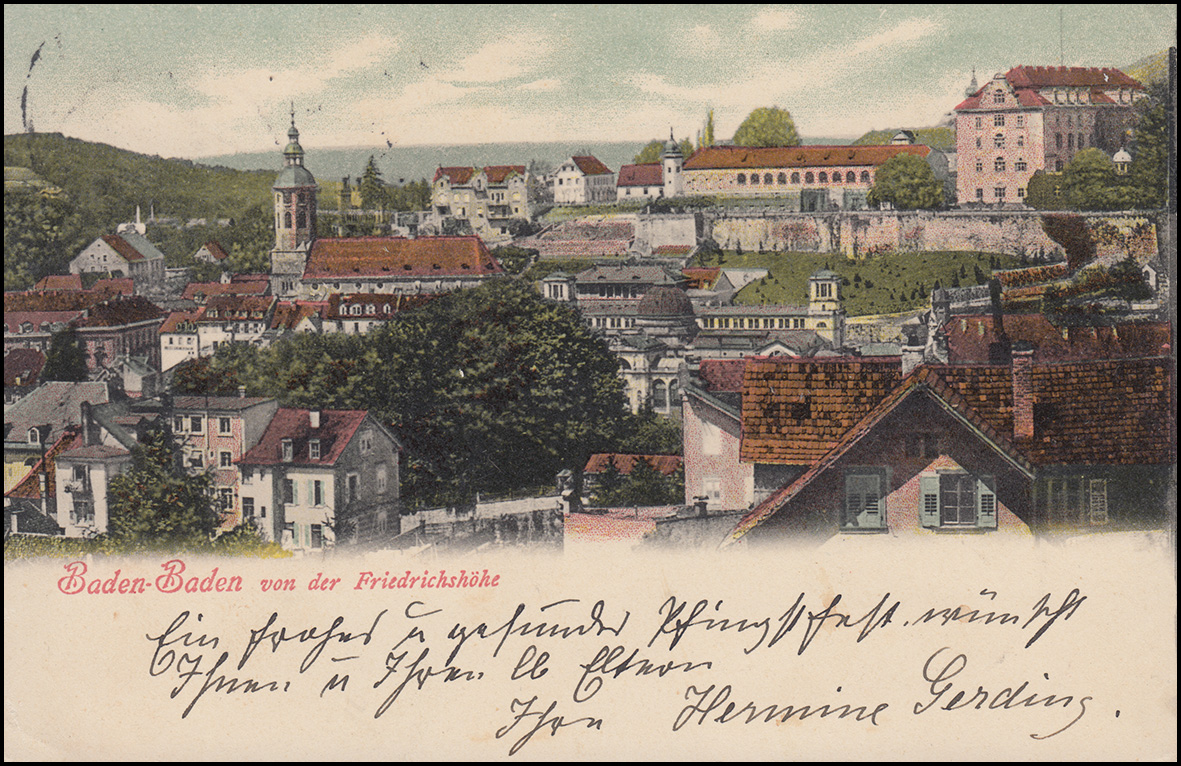 Baden-Baden von der Friedrichshöhe
Ein frohes u gesundes Pfingstfest wünscht
Ihnen u Ihren lb Eltern
Ihre Hermine Gerding.